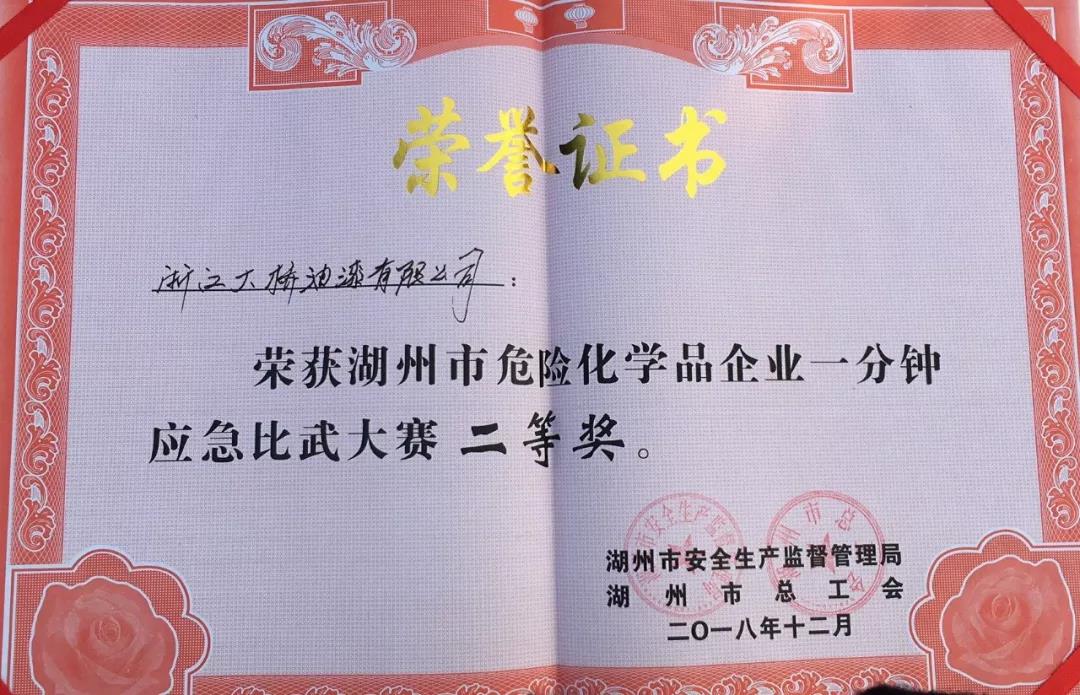 荣誉证书
浙江大桥油漆有限公司：
荣获湖州市危险化学品企业一分钟
应急比武大赛 二等奖。
湖州市安全生产监督管理局
湖州市总工会
二〇一八年十二月